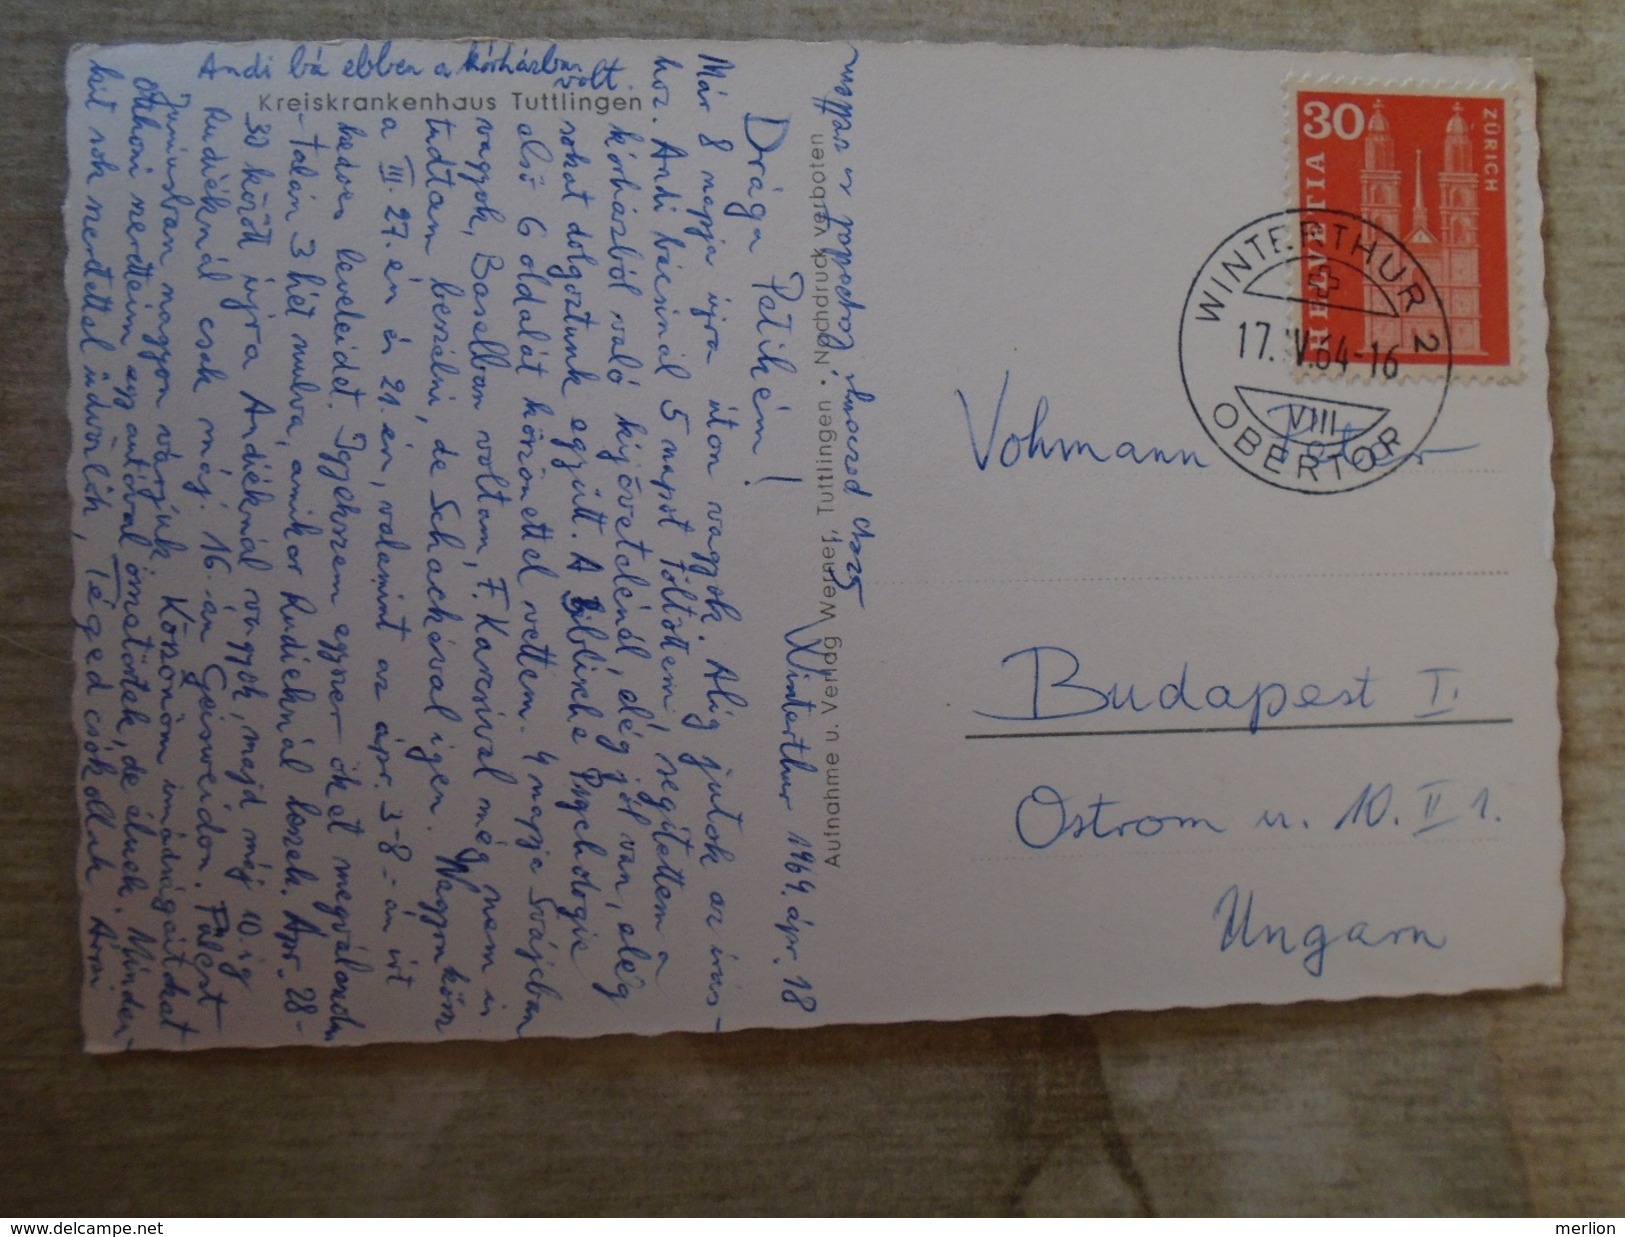 Andi bá ebben a kórházban
volt.
Kreiskrankenhaus Tuttlingen
Drága Petikém!
Winterthur 1964. ápr. 18
Már 8 napja újra úton vagyok. Alig jutok az írás-
hoz. Andi bácsinál 5 napot töltöttem, segítettem a
kórházból való kijövetelénél, elég jól van, elég
sokat dolgoztunk együtt. A Biblische Psychologie
első 6 oldalát köszönettel vettem. 4 napja Svájcban
vagyok, Baselban voltam, F. Karcsival még nem is
tudtam beszélni, de Schackéval igen. Nagyon kösz
a III. 27.én és 21.én, valamint az ápr. 3-8-án írt
kedves leveleidet. Igyekszem egyszer ők et megválaszolni
- talán 3 hét mulva, amikor Rudiéknál leszek. Ápr. 28-
30 között újra Andiéknál vagyok, majd máj 10.ig
Rudiéknál csak máj. 16-án Geisweidon.
Juniusban nagyon várjuk. Köszönöm imádságaitokat
Otthoni szeretteim egy autóval összetörtek, de élnek. Minden-
kit sok szeretettel üdvözlök, Téged csókollak Árpi
Aufnahme u. Verlag Werner, Tuttlingen · Nachdruck verboten
HELVETIA
30
ZÜRICH
WINTERTHUR 2
17. IV. 64-16
VIII
OBERTOR
Vohmann Péter
Budapest I.
Ostrom u. 10. II 1.
Ungarn
merlion